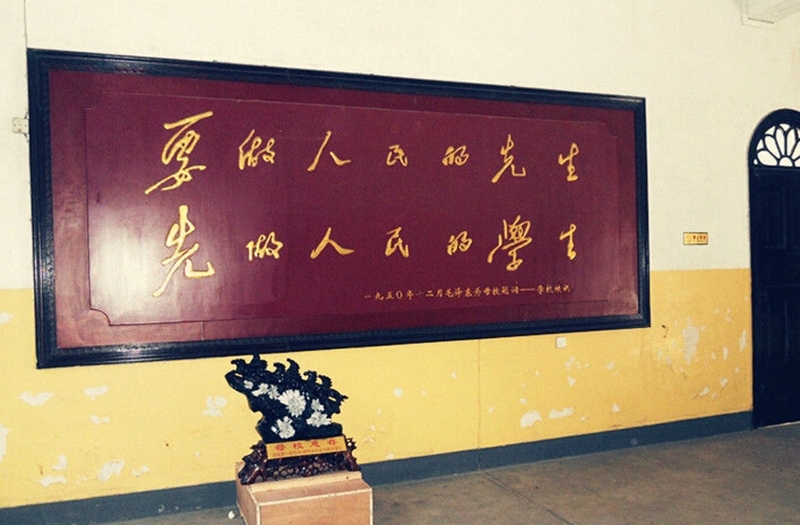 要做人民的先生
先做人民的學生
一九五〇年十二月毛泽东为母校题词——学校校训
母校惠存